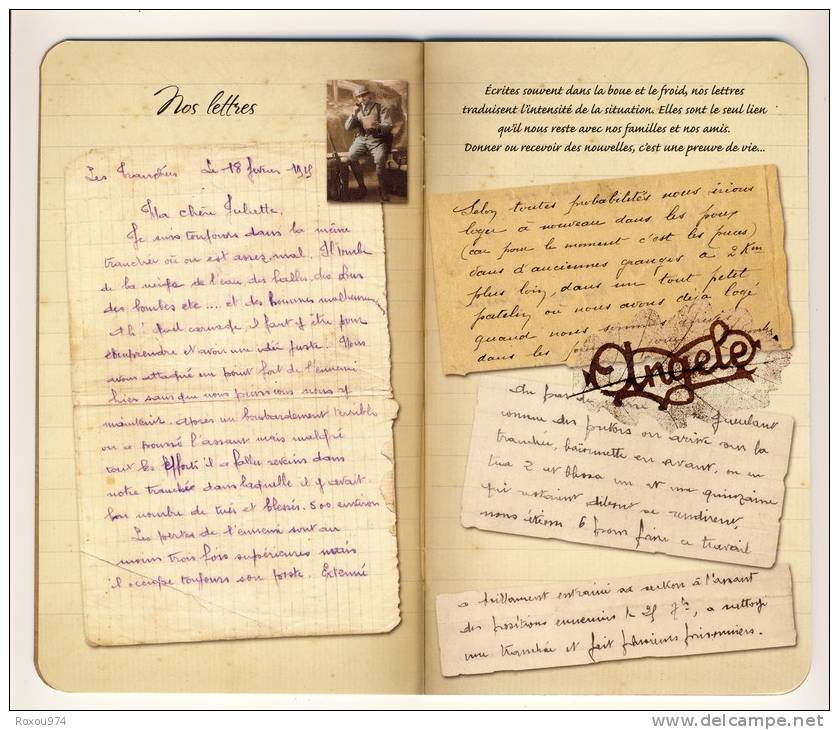 Nos lettres
Les Tranchées Le 18 février 1915
Ma chère Juliette,
Je suis toujours dans la même
tranchée où on est assez mal. Il tombe
de la neige de l'eau, des balles, des obus
des bombes etc .... et des hommes malheureusement
Ah ! Quel carnage il faut y être pour
comprendre et avoir une idée juste. Nous
avons attaqué un point fort de l'ennemi
hier sans que nous puissions nous y
maintenir. Après un bombardement terrible
on a poussé l'assaut mais malgré
tout les efforts il a fallu revenir dans
notre tranchée dans laquelle il y avait
bon nombre de tués et blessés. 500 environ
Les pertes de l'ennemi sont au
moins trois fois supérieures mais
il occupe toujours son poste. Exténué
Écrites souvent dans la boue et le froid, nos lettres
traduisent l'intensité de la situation. Elles sont le seul lien
qu'il nous reste avec nos familles et nos amis.
Donner ou recevoir des nouvelles, c'est une preuve de vie...
Selon toutes probabilités nous irions
loger a nouveau dans les poux
(car pour le moment c'est les puces)
dans d'anciennes granges a 2 Km
plus loin, dans un tout petit
patelin où nous avons déjà logé
quand nous sommes
dans les
Angele
Au pas de gueulant
comme des putois on arrive sur la
tranchée, baïonnette en avant, on en
tua 2 et blessa un et une quinzaine
qui restaient debout se rendirent,
nous étions 6 pour faire ce travail
a brillament entrainé sa section à l'assaut
des positions ennemies le 25 7bre, a nettoyé
une tranchée et fait plusieurs prisonniers.
Roxou974
delcampe.net